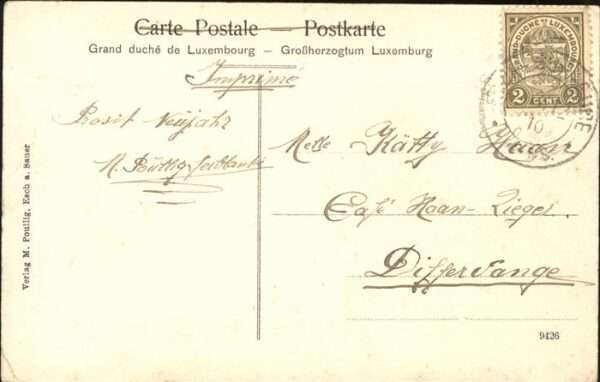 Carte Postale — Postkarte
Grand duché de Luxembourg – Großherzogtum Luxemburg
Imprimé
Prosit Neujahr
M.
Melle Kätty Haan
Café Haan-Zieger.
Differdange
Verlag M. Pouillig, Esch a. Sauer
9426
GRAND-DUCHÉ DE LUXEMBOURG
2 CENT 2
10